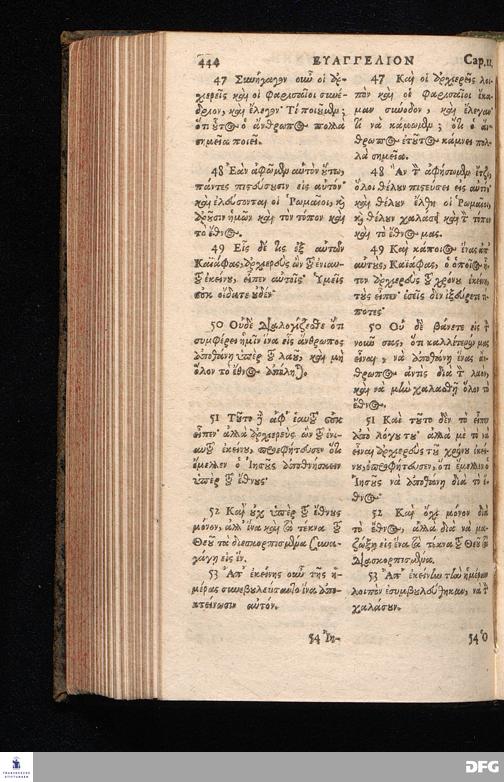 444 ΕΥΑΓΓΕΛΙΟΝ Cap.11.
47 Συνήγαγον οὖν οἱ ἀρ-
χιερεῖς καὶ οἱ Φαρισαῖοι συνέ-
δριον, καὶ ἔλεγον· Τί ποιοῦμεν;
ὅτι οὗτος ὁ ἄνθρωπος πολλὰ
σημεῖα ποιεῖ.
48 Ἐὰν ἀφῶμεν αὐτὸν οὕτω,
πάντες πιστεύσουσιν εἰς αὐτόν·
καὶ ἐλεύσονται οἱ Ῥωμαῖοι, κὶ
ἀροῦσιν ἡμῶν καὶ τὸν τόπον καὶ
τὸ ἔθνος.
49 Εἷς δέ τις ἐξ αὐτῶν
Καϊάφας, ἀρχιερεὺς ὢν τοῦ ἐνιαυ-
τοῦ ἐκείνου, εἶπεν αὐτοῖς· Ὑμεῖς
οὐκ οἴδατε οὐδέν·
50 Οὐδὲ διαλογίζεσθε ὅτι
συμφέρει ἡμῖν ἵνα εἷς ἄνθρωπος
ἀποθάνῃ ὑπὲρ τοῦ λαοῦ, καὶ μὴ
ὅλον τὸ ἔθνος ἀπόληται.
51 Τοῦτο δὲ ἀφ' ἑαυτοῦ οὐκ
εἶπεν· ἀλλὰ ἀρχιερεὺς ὢν τοῦ ἐνι-
αυτοῦ ἐκείνου, προεφήτευσεν ὅτι
ἔμελλεν ὁ Ἰησοῦς ἀποθνήσκειν
ὑπὲρ τοῦ ἔθνους·
52 Καὶ οὐχ ὑπὲρ τοῦ ἔθνους
μόνον, ἀλλ' ἵνα καὶ τὰ τέκνα τοῦ
Θεοῦ τὰ διεσκορπισμένα συνα-
γάγῃ εἰς ἕν.
53 Ἀπ' ἐκείνης οὖν τῆς ἡ-
μέρας συνεβουλεύσαντο ἵνα ἀπο-
κτείνωσιν αὐτόν.
54 Ἰη-
47 Καὶ οἱ ἀρχιερεῖς λοι-
πὸν καὶ οἱ Φαρισαῖοι ἔκα-
μαν σύνοδον, καὶ ἔλεγαν·
τί νὰ κάμωμεν; ὅτι ὁ ἄν-
θρωπος ἐτοῦτος κάμνει πολ-
λὰ σημεῖα.
48 Ἂν τὸν ἀφήσωμεν ἔτζι,
ὅλοι θέλουν πιστεύσει εἰς αὐτόν·
καὶ θέλουν ἔλθῃ οἱ Ῥωμαῖοι,
κὶ θέλουν χαλάσῃ καὶ τὸν τόπον
καὶ τὸ ἔθνος μας.
49 Καὶ κάποιος ἕνας ἀπ'
αὐτοὺς, Καϊάφας, ὁ ὁποῖος ἦ-
τον ἀρχιερεὺς τοῦ χρόνου ἐκείνου,
τοὺς εἶπεν· ἐσεῖς δὲν ἠξεύρετε τί-
ποτες·
50 Οὐδὲ βάνετε εἰς τὸν
νοῦν σας, ὅτι καλλίτερόν μας
εἶναι, νὰ ἀποθάνῃ ἕνας ἄν-
θρωπος ἀντὶς διὰ τὸν λαὸν,
καὶ νὰ μὴν χαλασθῇ ὅλον τὸ
ἔθνος.
51 Καὶ τοῦτο δὲν τὸ εἶπε
ἀπὸ λόγου του· ἀλλὰ μὲ τὸ νὰ
εἶναι ἀρχιερεὺς τοῦ χρόνου ἐκεί-
νου, ἐπροφήτευσεν, ὅτι ἔμελλεν ὁ
Ἰησοῦς νὰ ἀποθάνῃ διὰ τὸ ἔ-
θνος·
52 Καὶ ὄχι μόνον διὰ
τὸ ἔθνος, ἀλλὰ διὰ νὰ μα-
ζώξῃ εἰς ἕνα τὰ τέκνα τοῦ Θεοῦ τὰ
διασκορπισμένα.
53 Ἀπ' ἐκείνην τὴν ἡμέραν
λοιπὸν ἐσυμβουλεύθηκαν, νὰ τὸν
χαλάσουν.
54 Ὁ
FRANCKESCHE
STIFTUNGEN
DFG